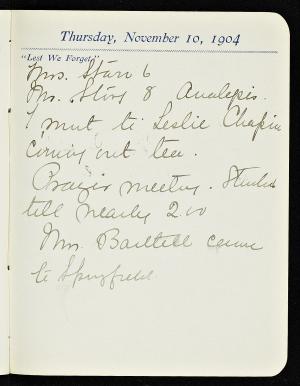 Thursday, November 10, 1904
"Lest We Forget."
Mrs. Starr 6
Mrs. Story 8 Analepis.
I went to Leslie Chapin
coming out tea.
Prayer meeting. Studied
till nearly 2.00
Mrs. Bartlett came
to Springfield.